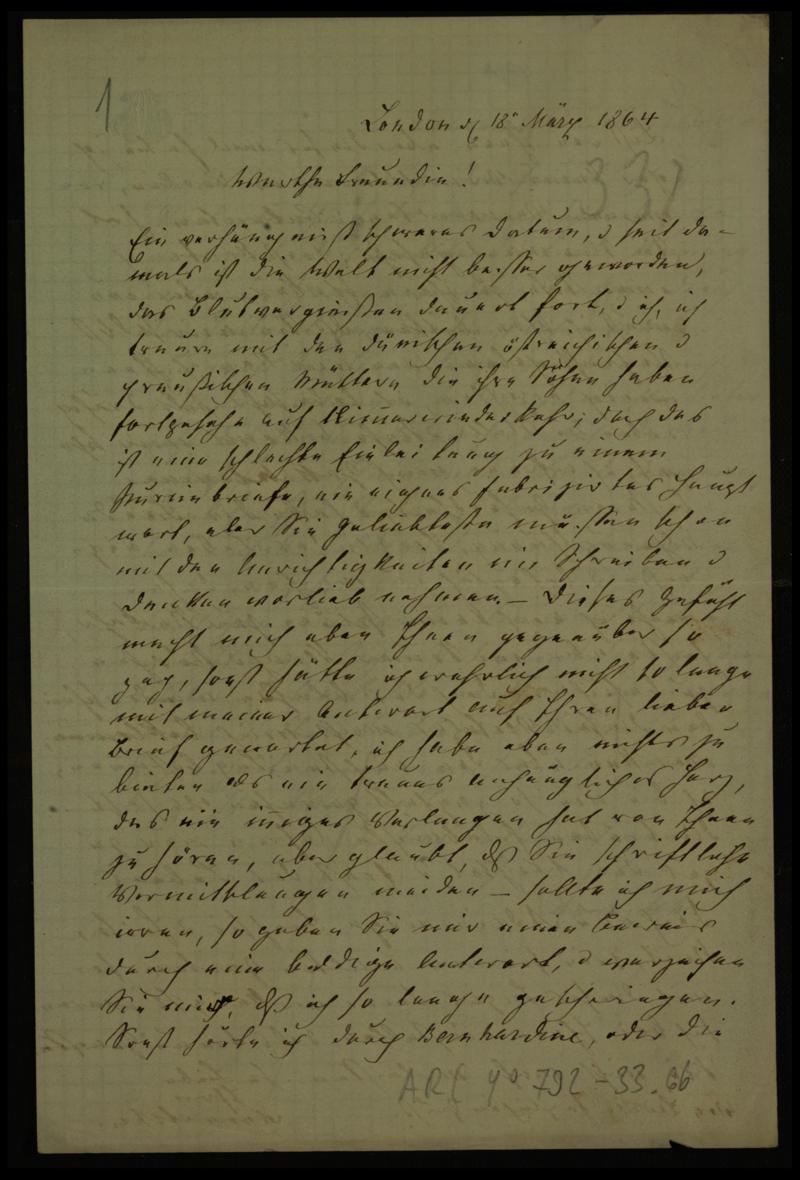 1
London d 18t März 1864
332
Werthe Freundin!
Ein verhängnißschweres Datum, d seit da-
mals ist die Welt nicht besser geworden,
das Blutvergießen dauert fort, d ich, ich
traure mit den dänischen östreichischen d
preußischen Müttern die ihre Söhne haben
fortgehen auf Nimmerwiederkehr; doch das
ist eine schlechte Einleitung zu einem
briefe, ein eignes fabrizirtes Haupt
wort, aber Sie Geliebteste müssen schon
mit den Unrichtigkeiten im Schreiben d
Denken vorlieb nehmen. – Dieses Gefühl
macht mich eben Ihnen gegenüber so
zag, sonst hätte ich wahrlich nicht so lange
mit meiner Antwort auf Ihren lieben
Brief gewartet, ich habe eben nichts zu
bieten als ein treues anhängliches Herz,
das ein iniges Verlangen hat von Ihnen
zu hören, aber glaubt, dß Sie schriftliche
Vermittlungen meiden – sollte ich mich
irren, so geben Sie mir einen Beweis
durch eine baldige Antwort, d verzeihen
Sie mir, dß ich so lange geschwiegen.
Sonst hörte ich durch Bernhardine, oder die
ARC 4o 792-33.66